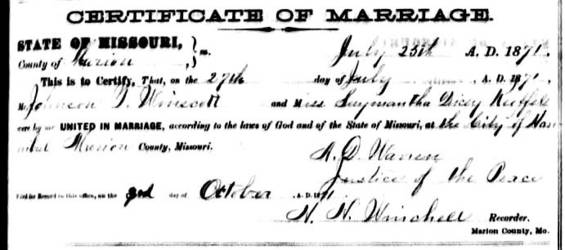 CERTIFICATE OF MARRIAGE.
STATE OF MISSOURI, } ss.
County of Marion } July 25th A. D. 1871.
This is to Certify, That, on the 27th day of July A. D. 1871,
Mr Johnson T. Winscott and Miss Dicey
were by me UNITED IN MARRIAGE, according to the laws of God and of the State of Missouri, at the City of Han
nibal Marion County, Missouri.
A. D. Warren
Justice of the Peace
Filed for Record in this office, on the 3rd day of October A. D. 1871
H. H. Winchell Recorder.
Marion County, Mo.